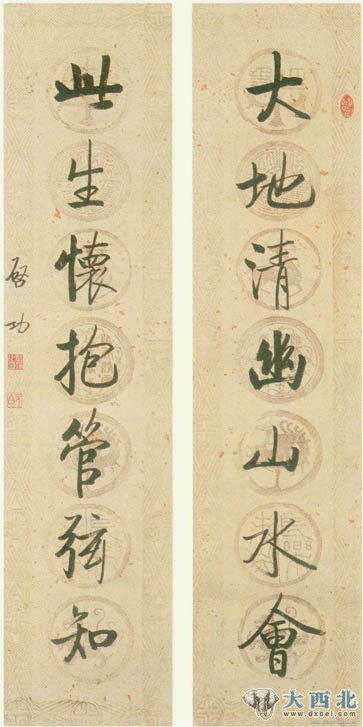 大地清幽山水會
此生懷抱管弦知
啓功
大西北
www.dxbei.com